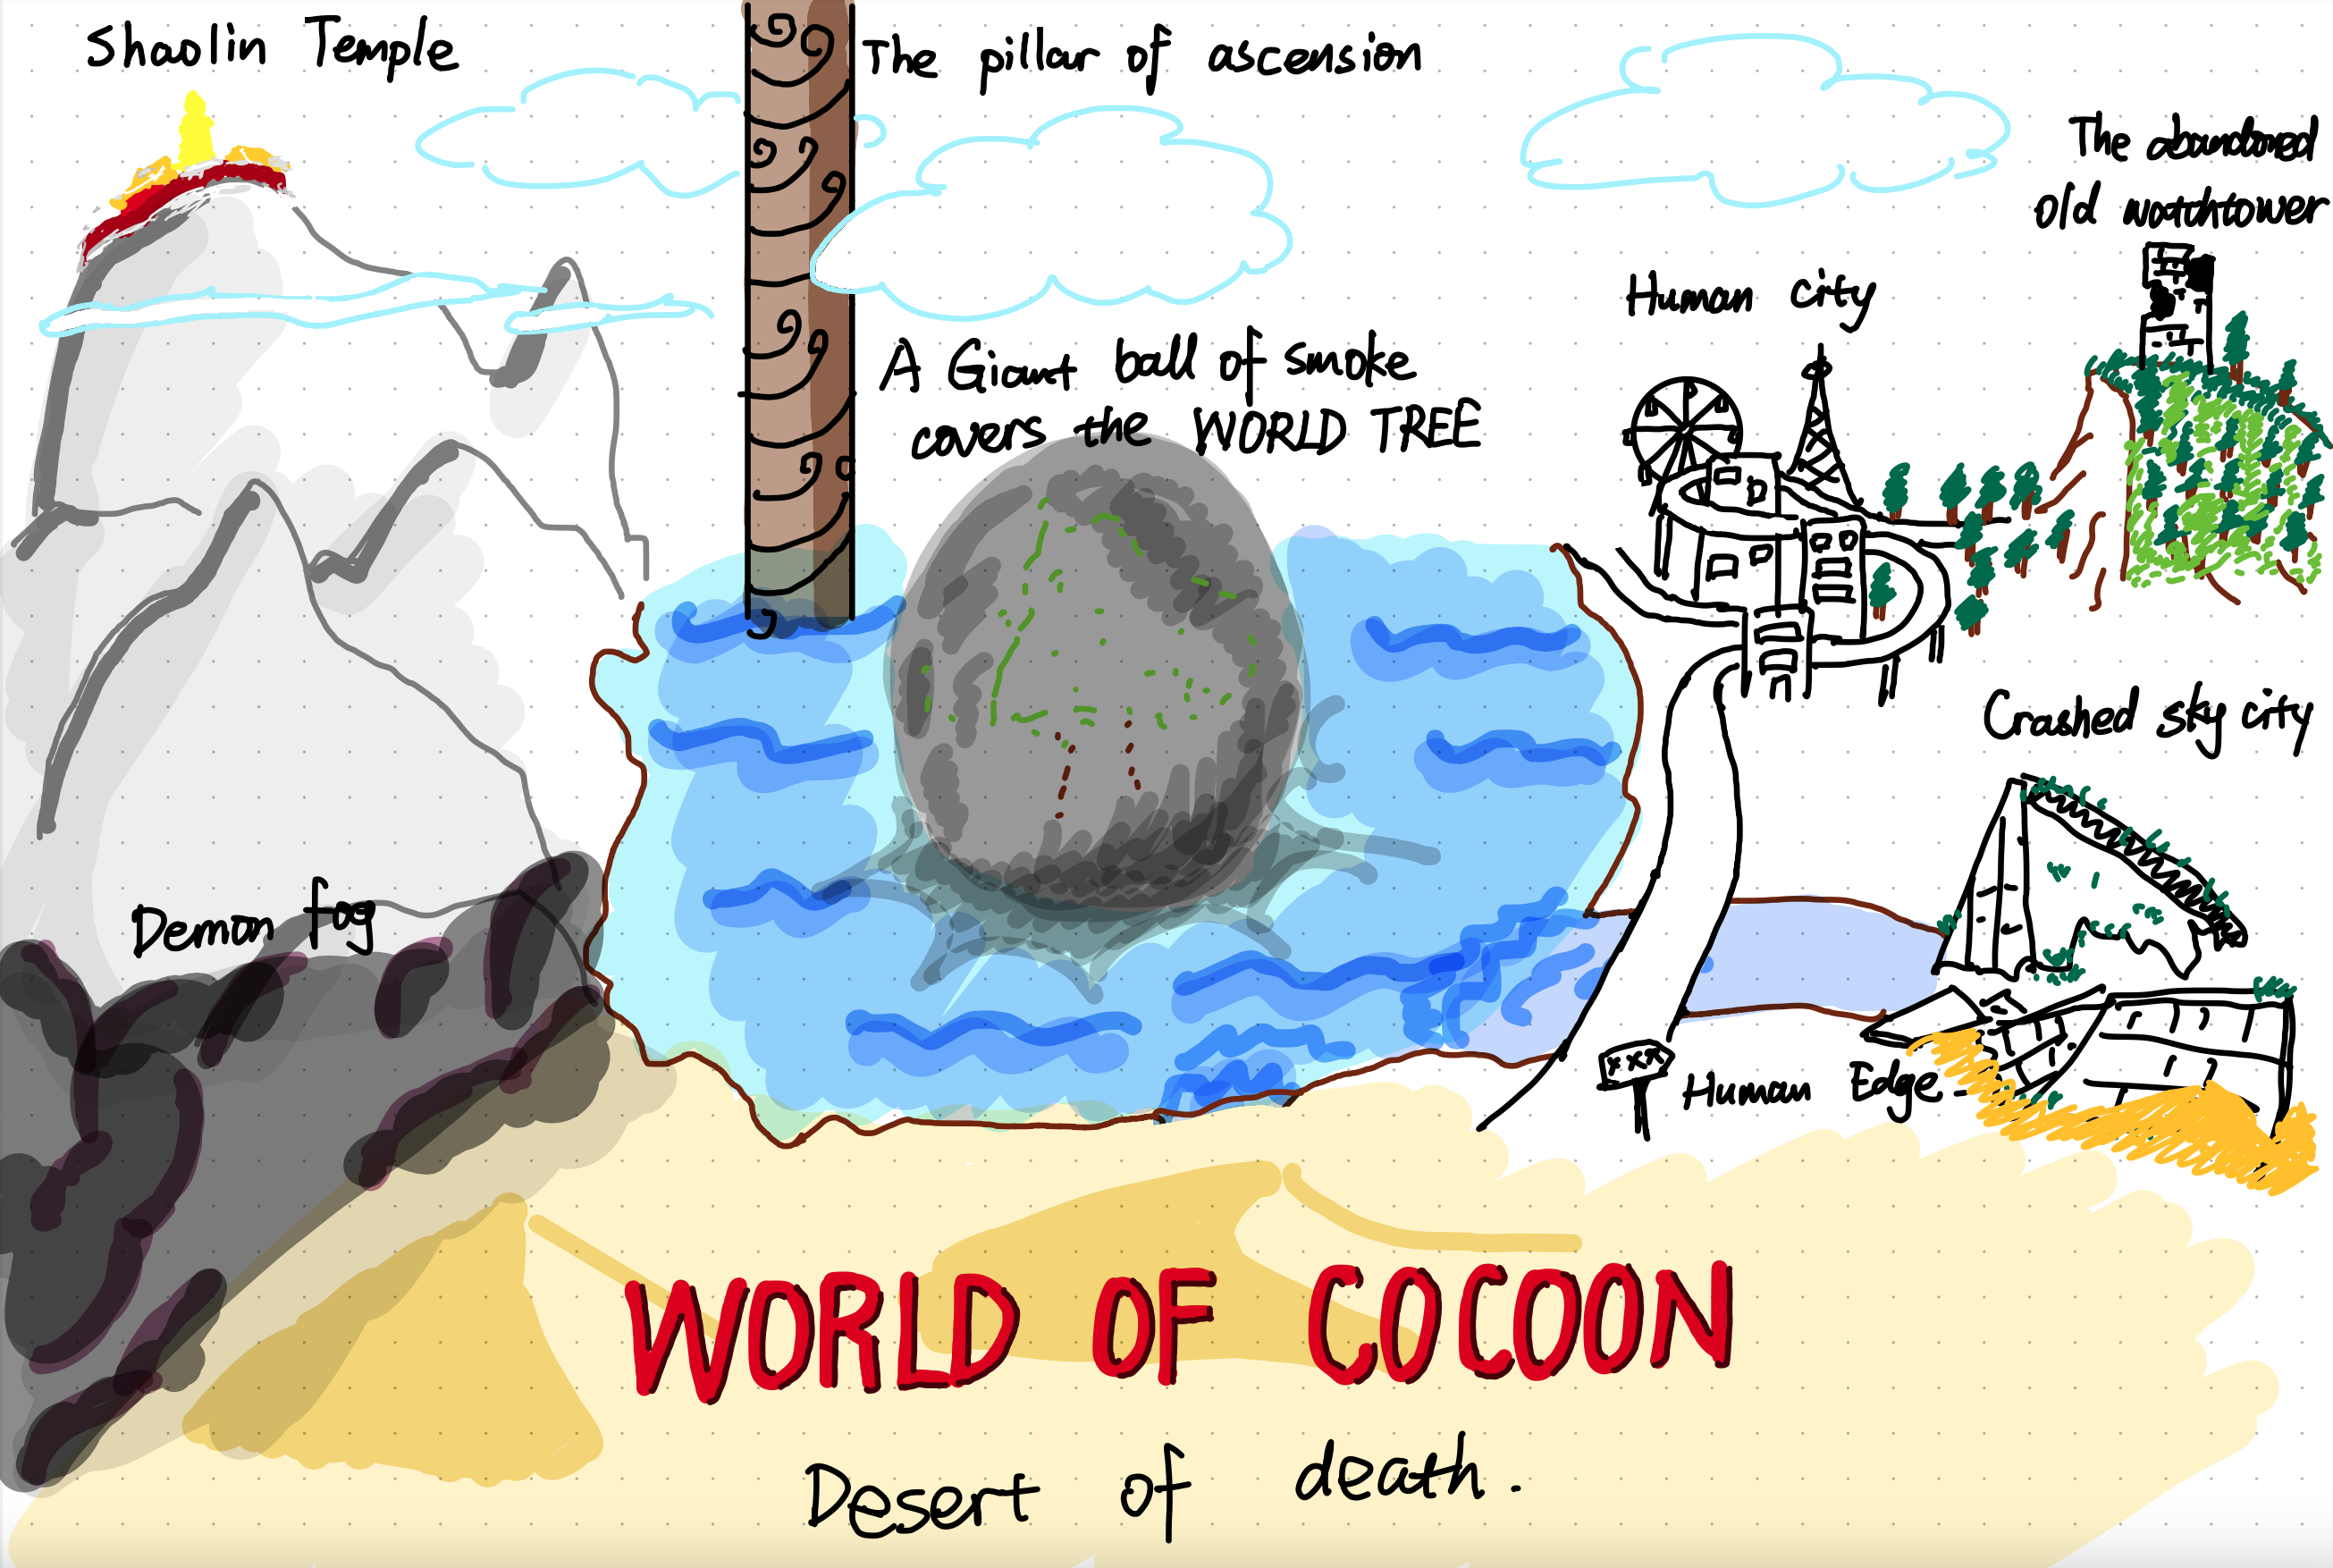 Shaolin Temple
The pillar of ascension
The abandoned
old watchtower
Human city
A Giant ball of smoke
covers the WORLD TREE
Crashed sky city
Demon fog
XXX
Human Edge
WORLD OF COCOON
Desert of death.